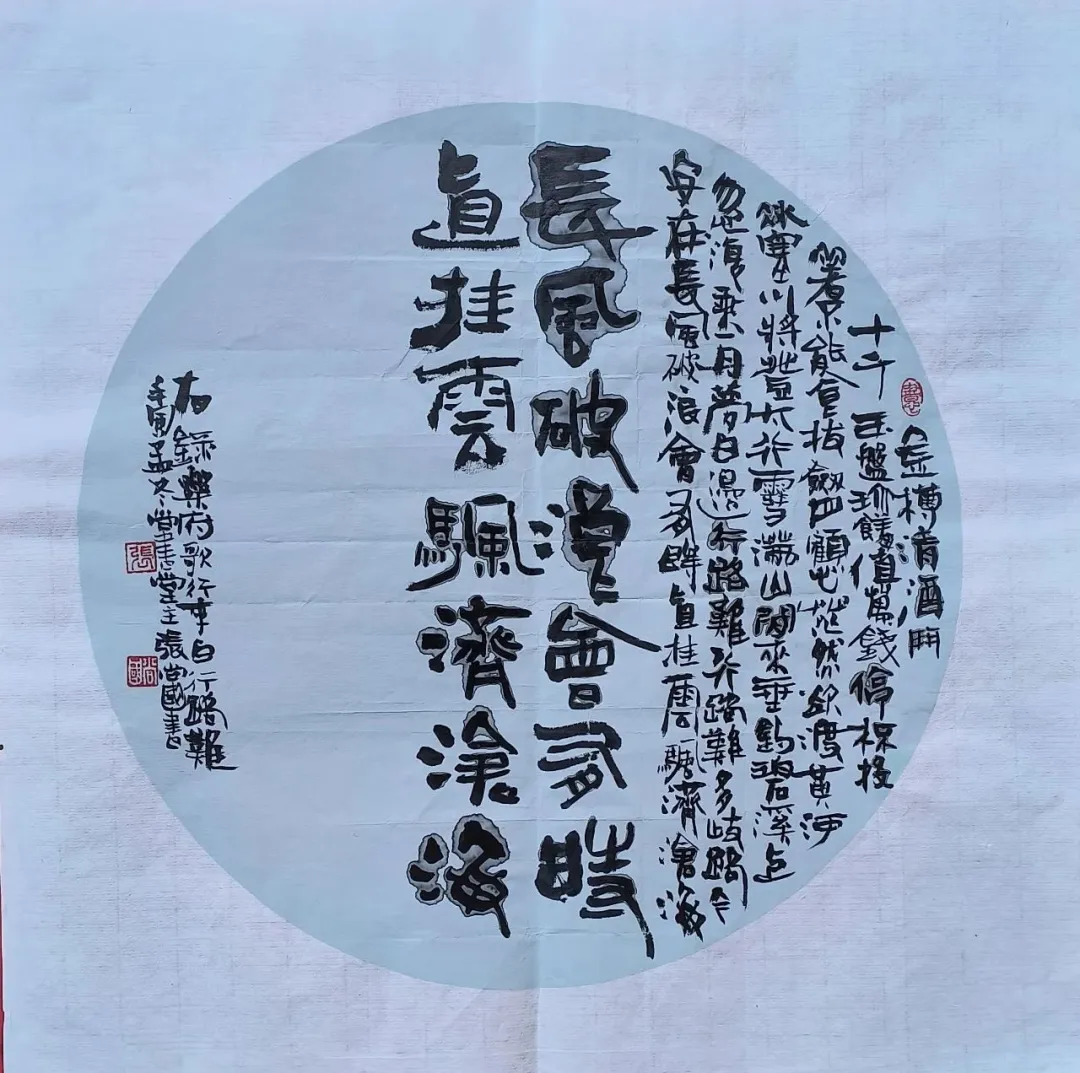 金樽清酒鬥
十千玉盤珍饈值萬錢停杯投
箸不能食拔劍四顧心茫然欲渡黃河
冰塞川將登太行雪滿山閒來垂釣碧溪上
忽復乘舟夢日邊行路難行路難多歧路今
安在長風破浪會有時直挂雲颿濟滄海
長風破浪會有時
直挂雲颿濟滄海
右錄樂府歌行李白行路難
孟冬堂主張尚國書
張
尚國